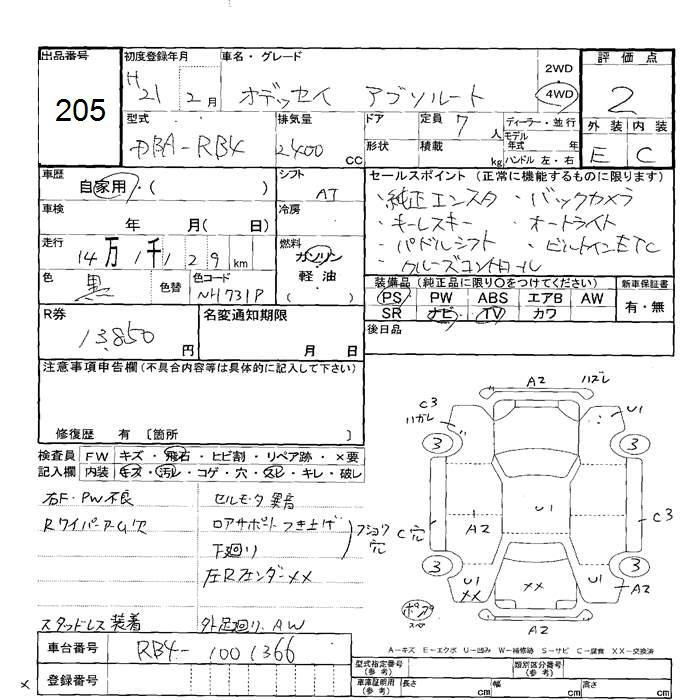 出品番号 初度登録年月 車名・グレード 評価点
205
H21 2月 オデッセイ アブソルート 2WD 4WD 2
型式 排気量 ドア 定員 7人 ディーラー・並行 外装 内装
モデル年式 年
DBA-RB4 2400cc 形状 積載 kg ハンドル 左・右 E C
車歴 シフト セールスポイント (正常に機能するものに限ります)
自家用・( ) AT ・純正エンスタ ・バックカメラ
車検 冷房 ・キーレスキー ・オートライト
年 月( 日) ・パドルシフト ・ビルトインETC
走行 燃料 ・クルーズコントロール
14万1千129km ガソリン
色 色替 色コード 軽油 装備品 (純正品に限り○をつけてください) 新車保証書
黒 NH731P ( ) PS PW ABS エアB AW 有・無
R券 名変通知期限 SR ナビ TV カワ
13,850円 月 日 後日品
注意事項申告欄 (不具合内容等は具体的に記入して下さい)
修復歴 有 〔箇所 〕
検査員 FW キズ・飛石・ヒビ割・リペア跡・×要
記入欄 内装 キズ・汚レ・コゲ・穴・スレ・キレ・破レ
右F・PW不良 セルモータ異音
Rワイパーアーム欠 ロアサポートつき上げ
下廻り
左Rフェンダー××
スタッドレス装着 外足廻り、AW
A2
C3
U1
3
3
C穴
A2
U1
C3
3
3
U1
××
××
U1
A2
A2
A-キズ E-エクボ U-凹み W-補修跡 S-サビ C-腐食 XX-交換済
車台番号 RB4-1001366
型式指定番号 (参考) 類別区分番号 (参考)
登録番号
車庫証明用 (参考) 長さ cm 幅 cm 高さ cm